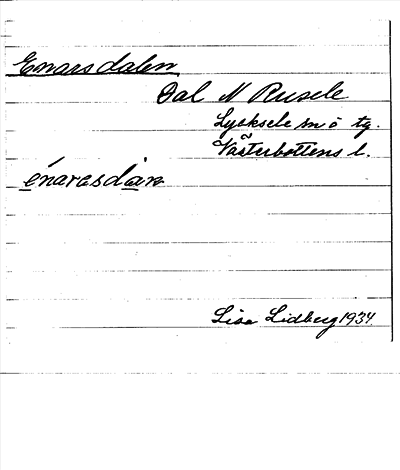 Enarsdalen
Dal N Rusele
Lycksele sn o tg.
Västerbottens l.
énaresdàn
Lisa Lidberg 1934.